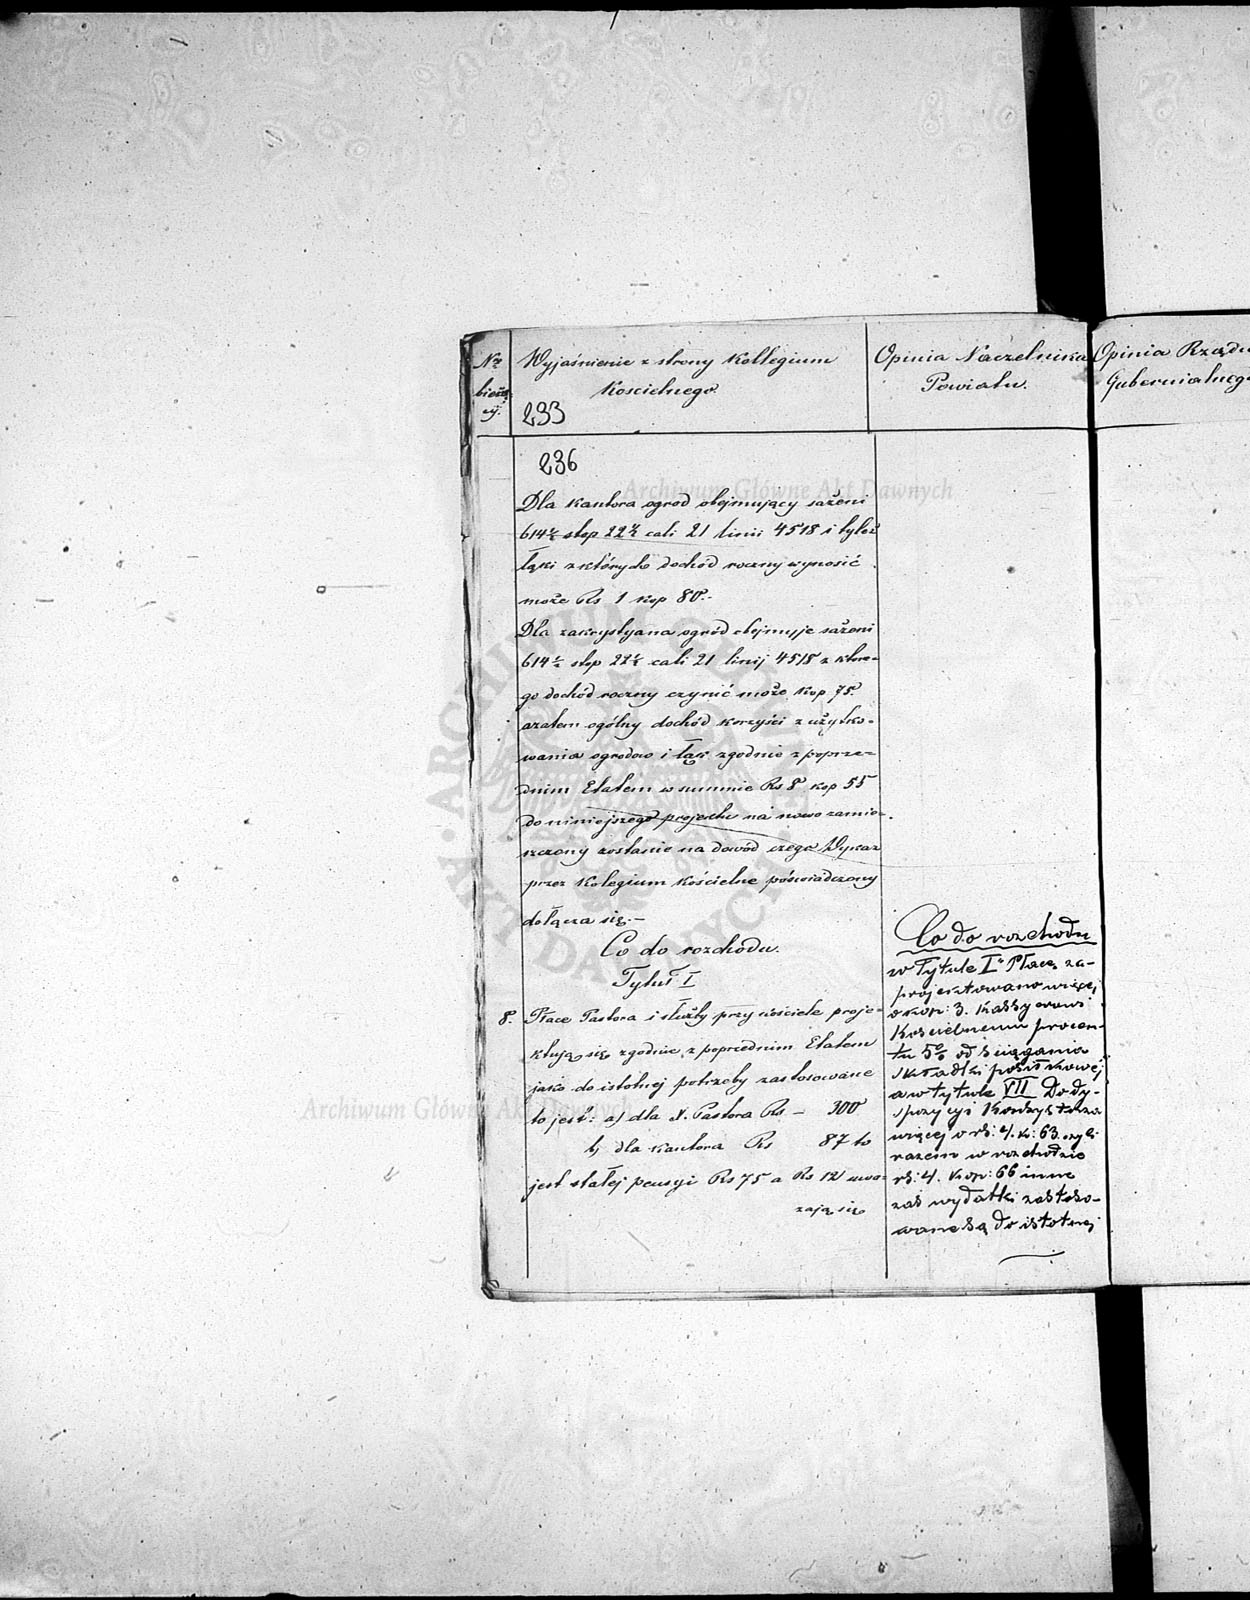 Nr
bieżą
cy.
Wyjaśnienie z strony Kollegium
Kościelnego.
233
Opinia Naczelnika
Powiatu.
Opinia Rządu
Gubernialnego
236
Archiwum Główne Akt Dawnych
Dla kantora ogrod obejmujący sażeni
614½ stop 22½ cali 21 linii 4518 i tyleż
łąki z których dochód roczny wynosić
może Rs 1 kop 80.-
Dla zakrystyana ogród obejmuje sażeni
614½ stop 22½ cali 21 linij 4518 z które-
go dochód roczny czynić może kop 75.
azatem ogólny dochód korzyści z użytko-
wania ogrodow i łąk zgodnie z poprze-
dnim Etatem w summie Rs 8 kop 55
do niniejszego projektu na nowo zamie-
szczony zostanie na dowód czego Wykaz
przez Kolegium Kościelne poświadczony
dołącza się.-
Co do rozchodu.
Tytuł I
8. Płace Pastora i służby przy kościele proje-
ktują się zgodnie z poprzednim Etatem
jako do istotnej potrzeby zastosowane
to jest: a) dla X. Pastora Rs – 300
Archiwum Główne Akt Dawnych
b) dla kantora Rs 87 to
jest stałej pensyi Rs 75 a Rs 12 uwa-
zają się
Co do rozchodu
w Tytule I Płace, za-
projektowano więcej
o kop: 3. Kassyerowi
Kościelnemu procen-
tu 5% od ściągania
składki posiłkowej
a w tytule VII Do dy-
spozycyi Konsystorza
więcej o rs: 4. k: 63. czyli
razem w rozchodzie
rs: 4. kop: 66 inne
zaś wydatki zastoso-
wane są do istotnej
ARCHIWUM
AKT DAWNYCH